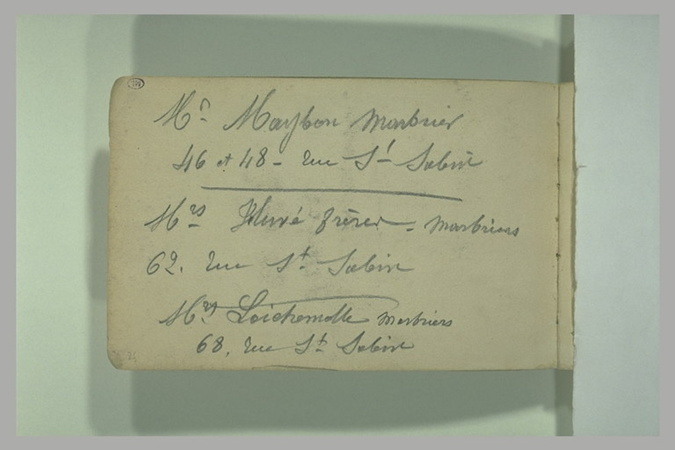 Mr Maybon marbrier
46 et 48 - rue St Sabin
Mrs frères - marbriers
62. rue St Sabin
Mrs Loichemolle marbriers
68, rue St Sabin